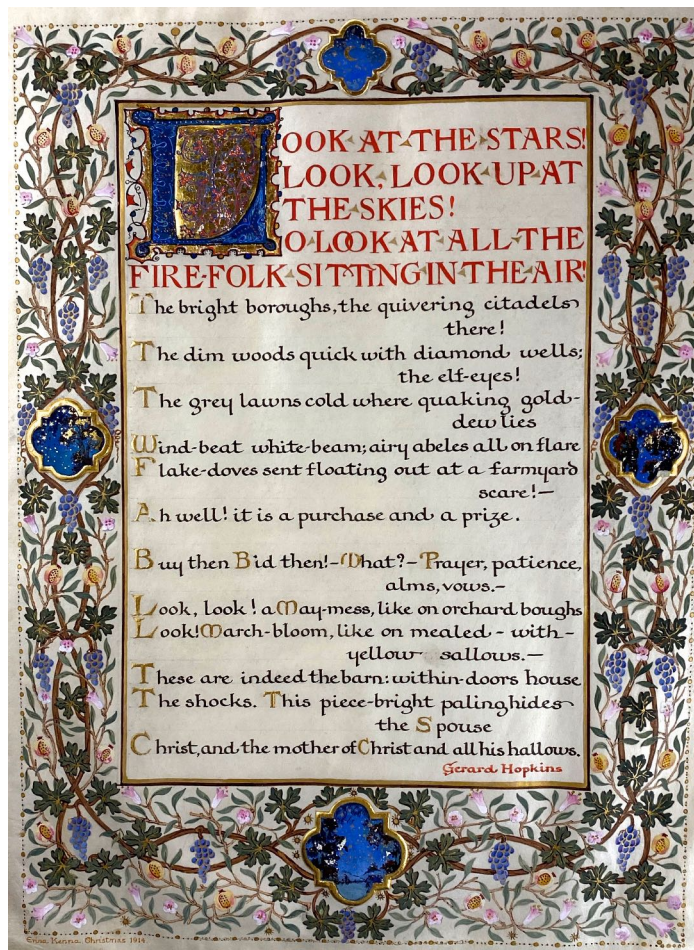 LOOK AT THE STARS!
LOOK, LOOK UP AT
THE SKIES!
O LOOK AT ALL THE
FIRE-FOLK SITTING IN THE AIR!
The bright boroughs, the quivering citadels
there!
The dim woods quick with diamond wells;
the elf-eyes!
The grey lawns cold where quaking gold-
dew lies
Wind-beat white-beam; airy abeles all on flare
Flake-doves sent floating out at a farmyard
scare!—
Ah well! it is a purchase and a prize.
Buy then Bid then!—What?—Prayer, patience,
alms, vows.—
Look, look! a May-mess, like on orchard boughs
Look! March-bloom, like on mealed-with-
yellow sallows.—
These are indeed the barn: within-doors house
The shocks. This piece-bright paling hides
the Spouse
Christ, and the mother of Christ and all his hallows.
Gerard Hopkins
Kenna. Christmas 1914